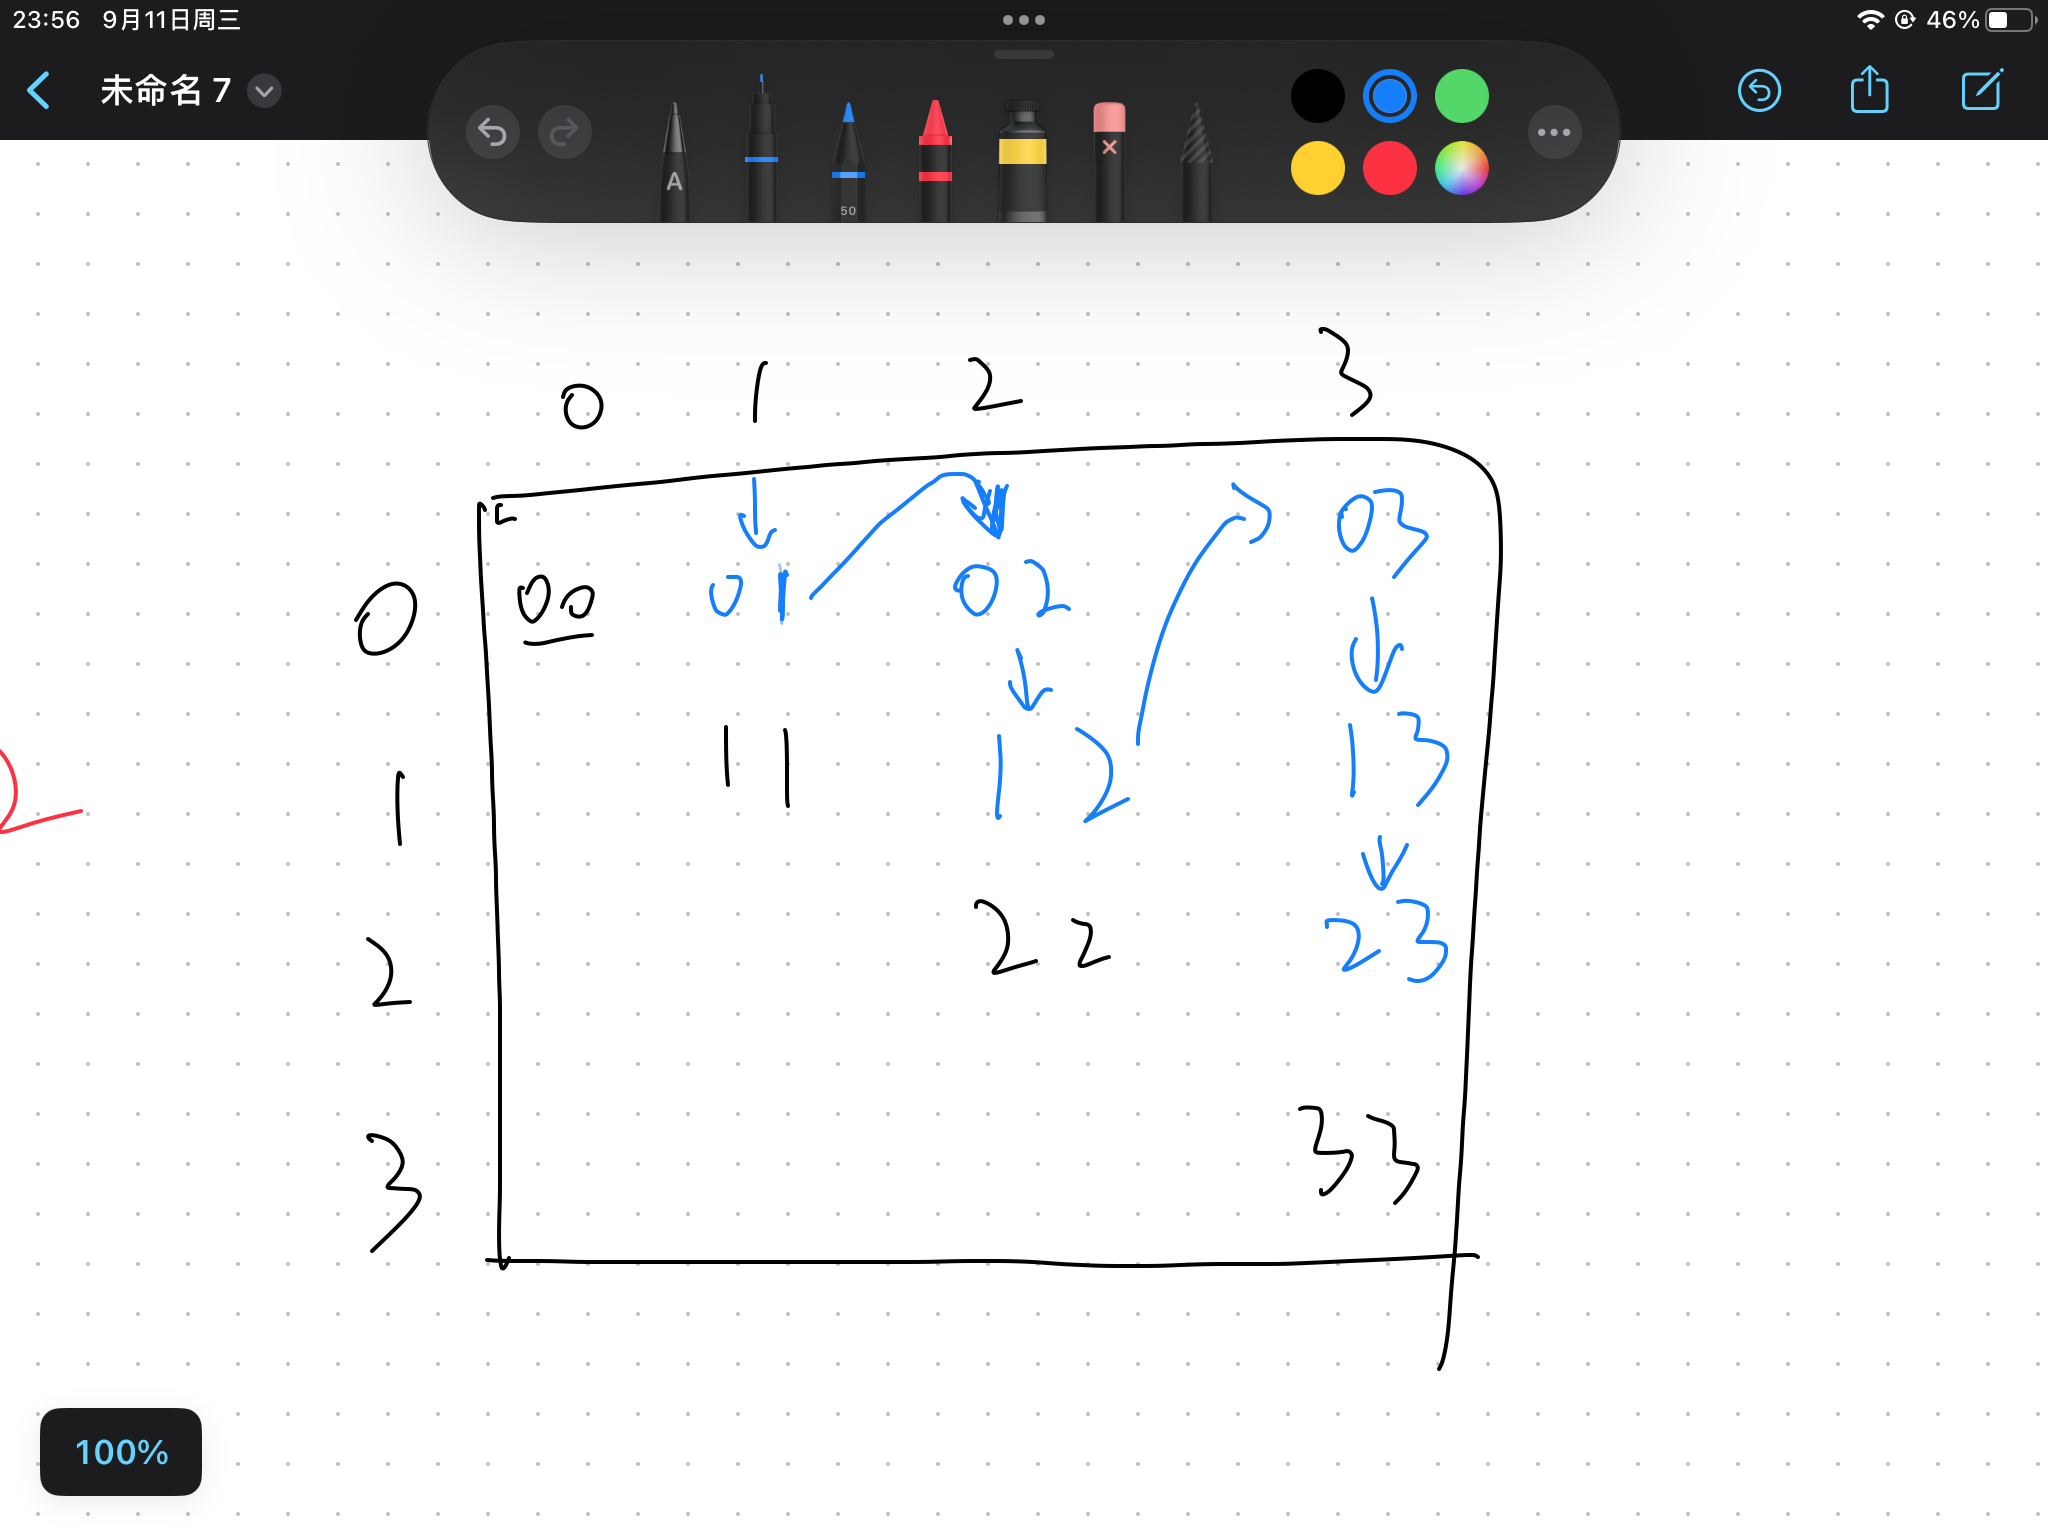 23:56 9月11日周三
46%
未命名 7
A
50
0 1 2 3
0 00 01 02 03
1 11 12 13
2 22 23
3 33
2
100%